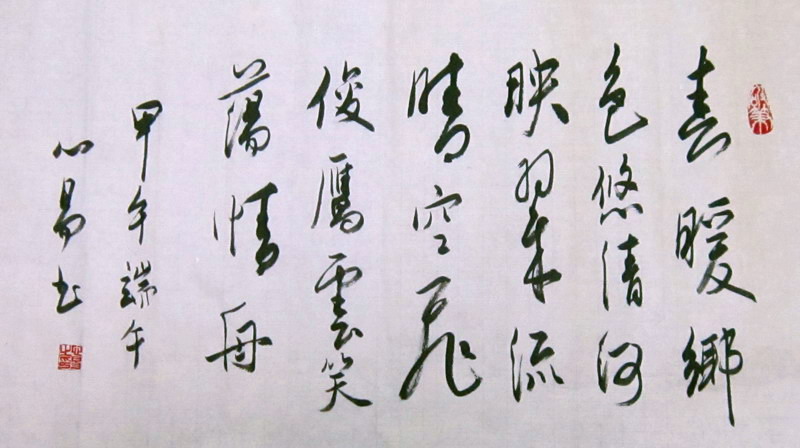 春暖鄉
色悠清河
映翠流
晴空飛
俊鷹雲笑
蕩情舟
甲午端午
心易书